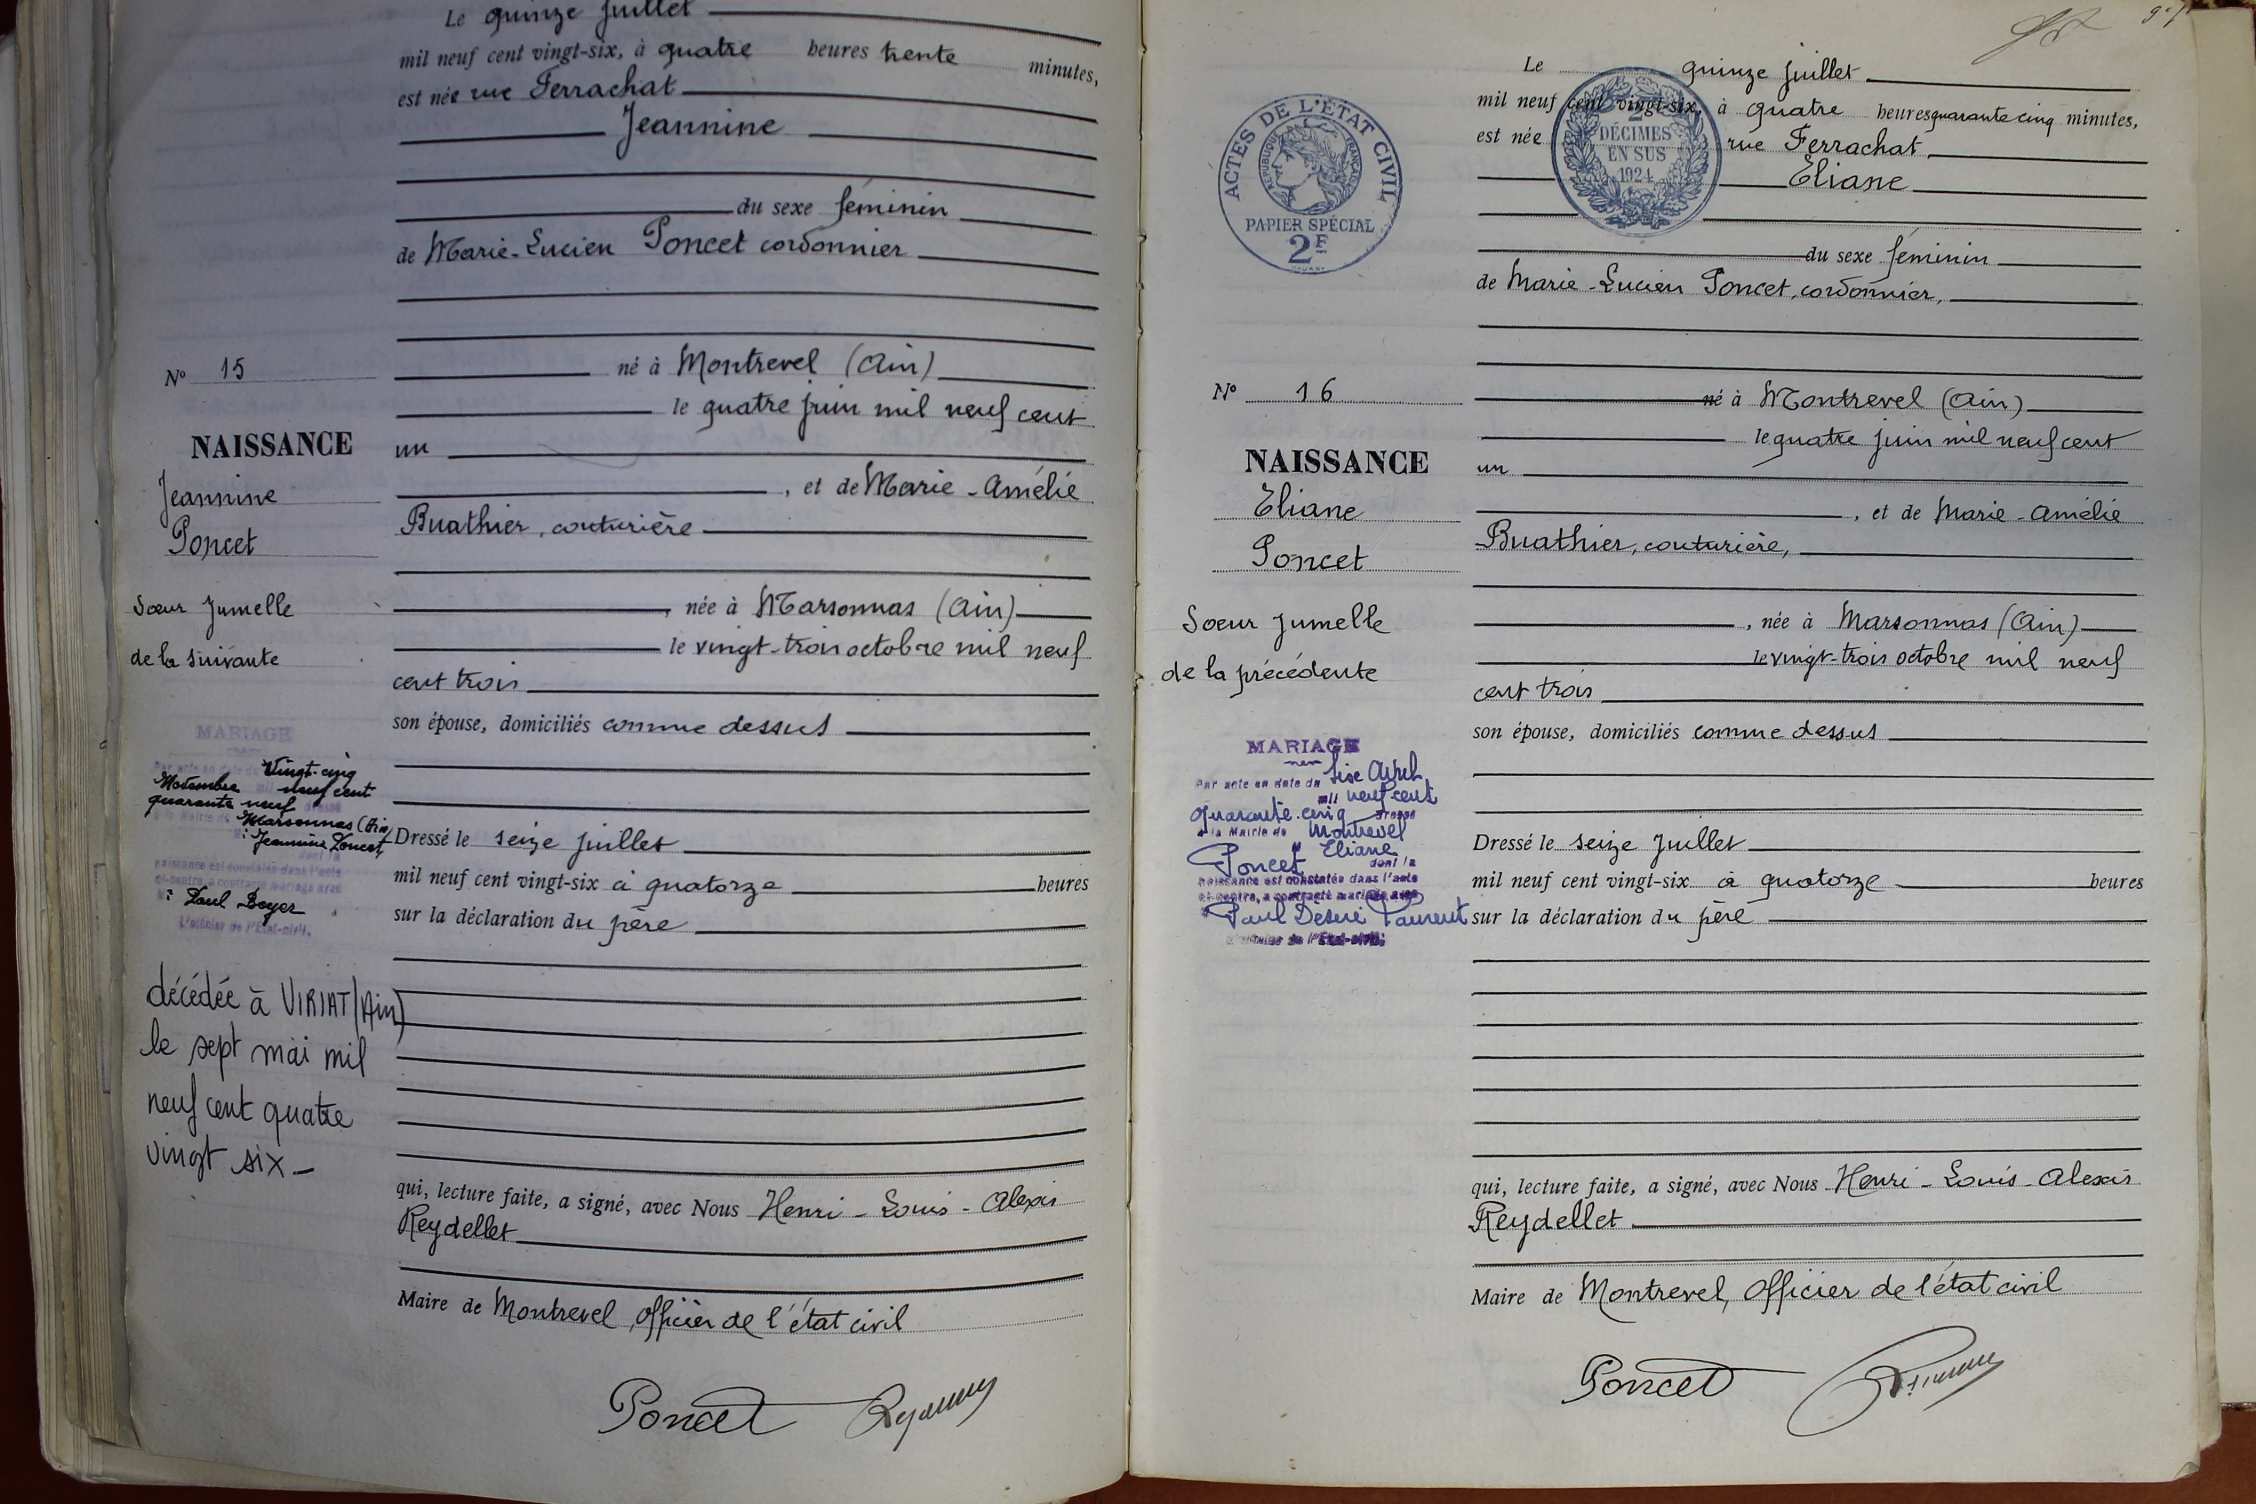 Le quinze juillet
mil neuf cent vingt-six, à quatre heures trente minutes,
est née rue Ferrachat
Jeannine
du sexe féminin
de Marie-Lucien Poncet cordonnier
né à Montrevel (Ain)
le quatre juin mil neuf cent
un
, et de Marie-Amélie
Buathier, couturière
, née à Marsonnas (Ain)
le vingt-trois octobre mil neuf
cent trois
son épouse, domiciliés comme dessus
Dressé le seize juillet
mil neuf cent vingt-six à quatorze heures
sur la déclaration du père
qui, lecture faite, a signé, avec Nous Henri-Louis-Alexis
Reydellet
Maire de Montrevel, officier de l'état civil
Poncet
N° 15
NAISSANCE
Jeannine
Poncet
Soeur Jumelle
de la suivante
MARIAGE
Vingt-cinq
Novembre neuf cent
quarante neuf
Marsonnas (Ain)
Jeannine Poncet
dont la
naissance est constatée dans l'acte
ci-contre, a contracté mariage avec
Paul Boyer
L'officier de l'Etat-civil,
décédée à VIRIAT (Ain)
le sept mai mil
neuf cent quatre
vingt six
Le quinze juillet
mil neuf cent vingt-six, à quatre heures quarante cinq minutes,
est née rue Ferrachat
Eliane
du sexe féminin
de Marie-Lucien Poncet, cordonnier,
né à Montrevel (Ain)
le quatre juin mil neuf cent
un
, et de Marie-Amélie
Buathier, couturière,
, née à Marsonnas (Ain)
le vingt-trois octobre mil neuf
cent trois
son épouse, domiciliés comme dessus
Dressé le seize juillet
mil neuf cent vingt-six à quatorze heures
sur la déclaration du père
qui, lecture faite, a signé, avec Nous Henri-Louis-Alexis
Reydellet
Maire de Montrevel, officier de l'état civil
Poncet
ACTES DE L'ÉTAT CIVIL
RÉPUBLIQUE FRANÇAISE
PAPIER SPÉCIAL
2F
2
DÉCIMES
EN SUS
1924
N° 16
NAISSANCE
Eliane
Poncet
Soeur Jumelle
de la précédente
MARIAGE
Par acte en date du Six Avril
mil neuf cent
quarante-cinq dressé
à la Mairie de Montrevel
Eliane
Poncet dont la
naissance est constatée dans l'acte
ci-contre, a contracté mariage avec
Paul Désiré Laurent
L'officier de l'Etat-civil